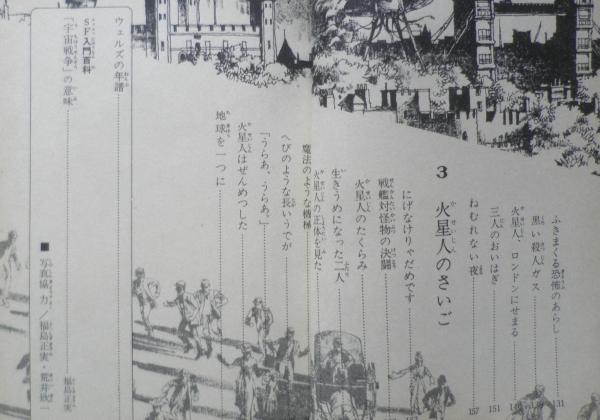 ふきまくる恐怖のあらし 131
黒い殺人ガス
火星人、ロンドンにせまる
三人のおいはぎ 151
ねむれない夜 157
3 火星人のさいご
にげなけりゃだめです
戦艦対怪物の決闘
火星人のたくらみ
生きうめになった二人
火星人の正体を見た
魔法のような機械
へびのような長いうでが
「うらあ、うらあ。」
火星人はぜんめつした
地球を一つに
ウェルズの年譜
SF入門百科
「宇宙戦争」の意味 福島正実
■写真協力／福島正実・荒井欣一